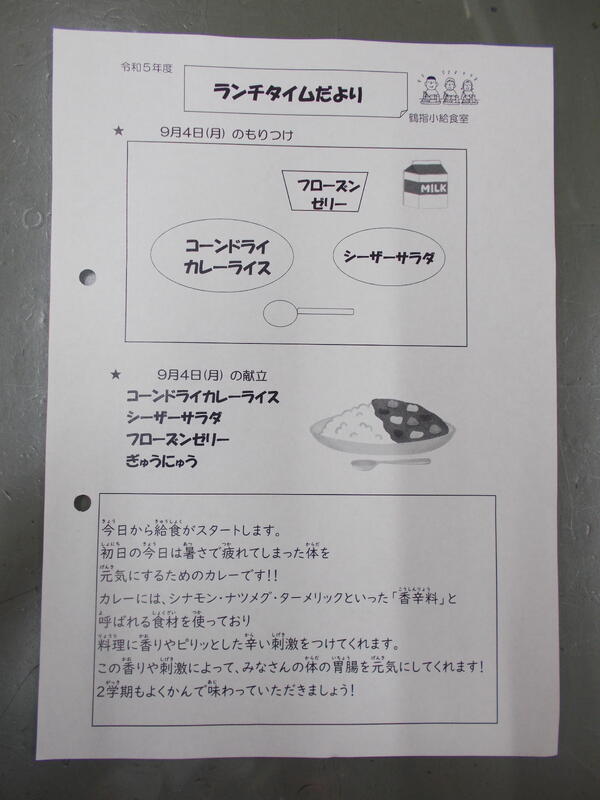 令和5年度
ランチタイムだより
鶴指小給食室
★ 9月4日(月) のもりつけ
フローズン
ゼリー
MILK
コーンドライ
カレーライス
シーザーサラダ
★ 9月4日(月) の献立
コーンドライカレーライス
シーザーサラダ
フローズンゼリー
ぎゅうにゅう
今日から給食がスタートします。
初日の今日は暑さで疲れてしまった体を
元気にするためのカレーです!!
カレーには、シナモン・ナツメグ・ターメリックといった「香辛料」と
呼ばれる食材を使っており
料理に香りやピリッとした辛い刺激をつけてくれます。
この香りや刺激によって、みなさんの体の胃腸を元気にしてくれます!
2学期もよくかんで味わっていただきましょう!